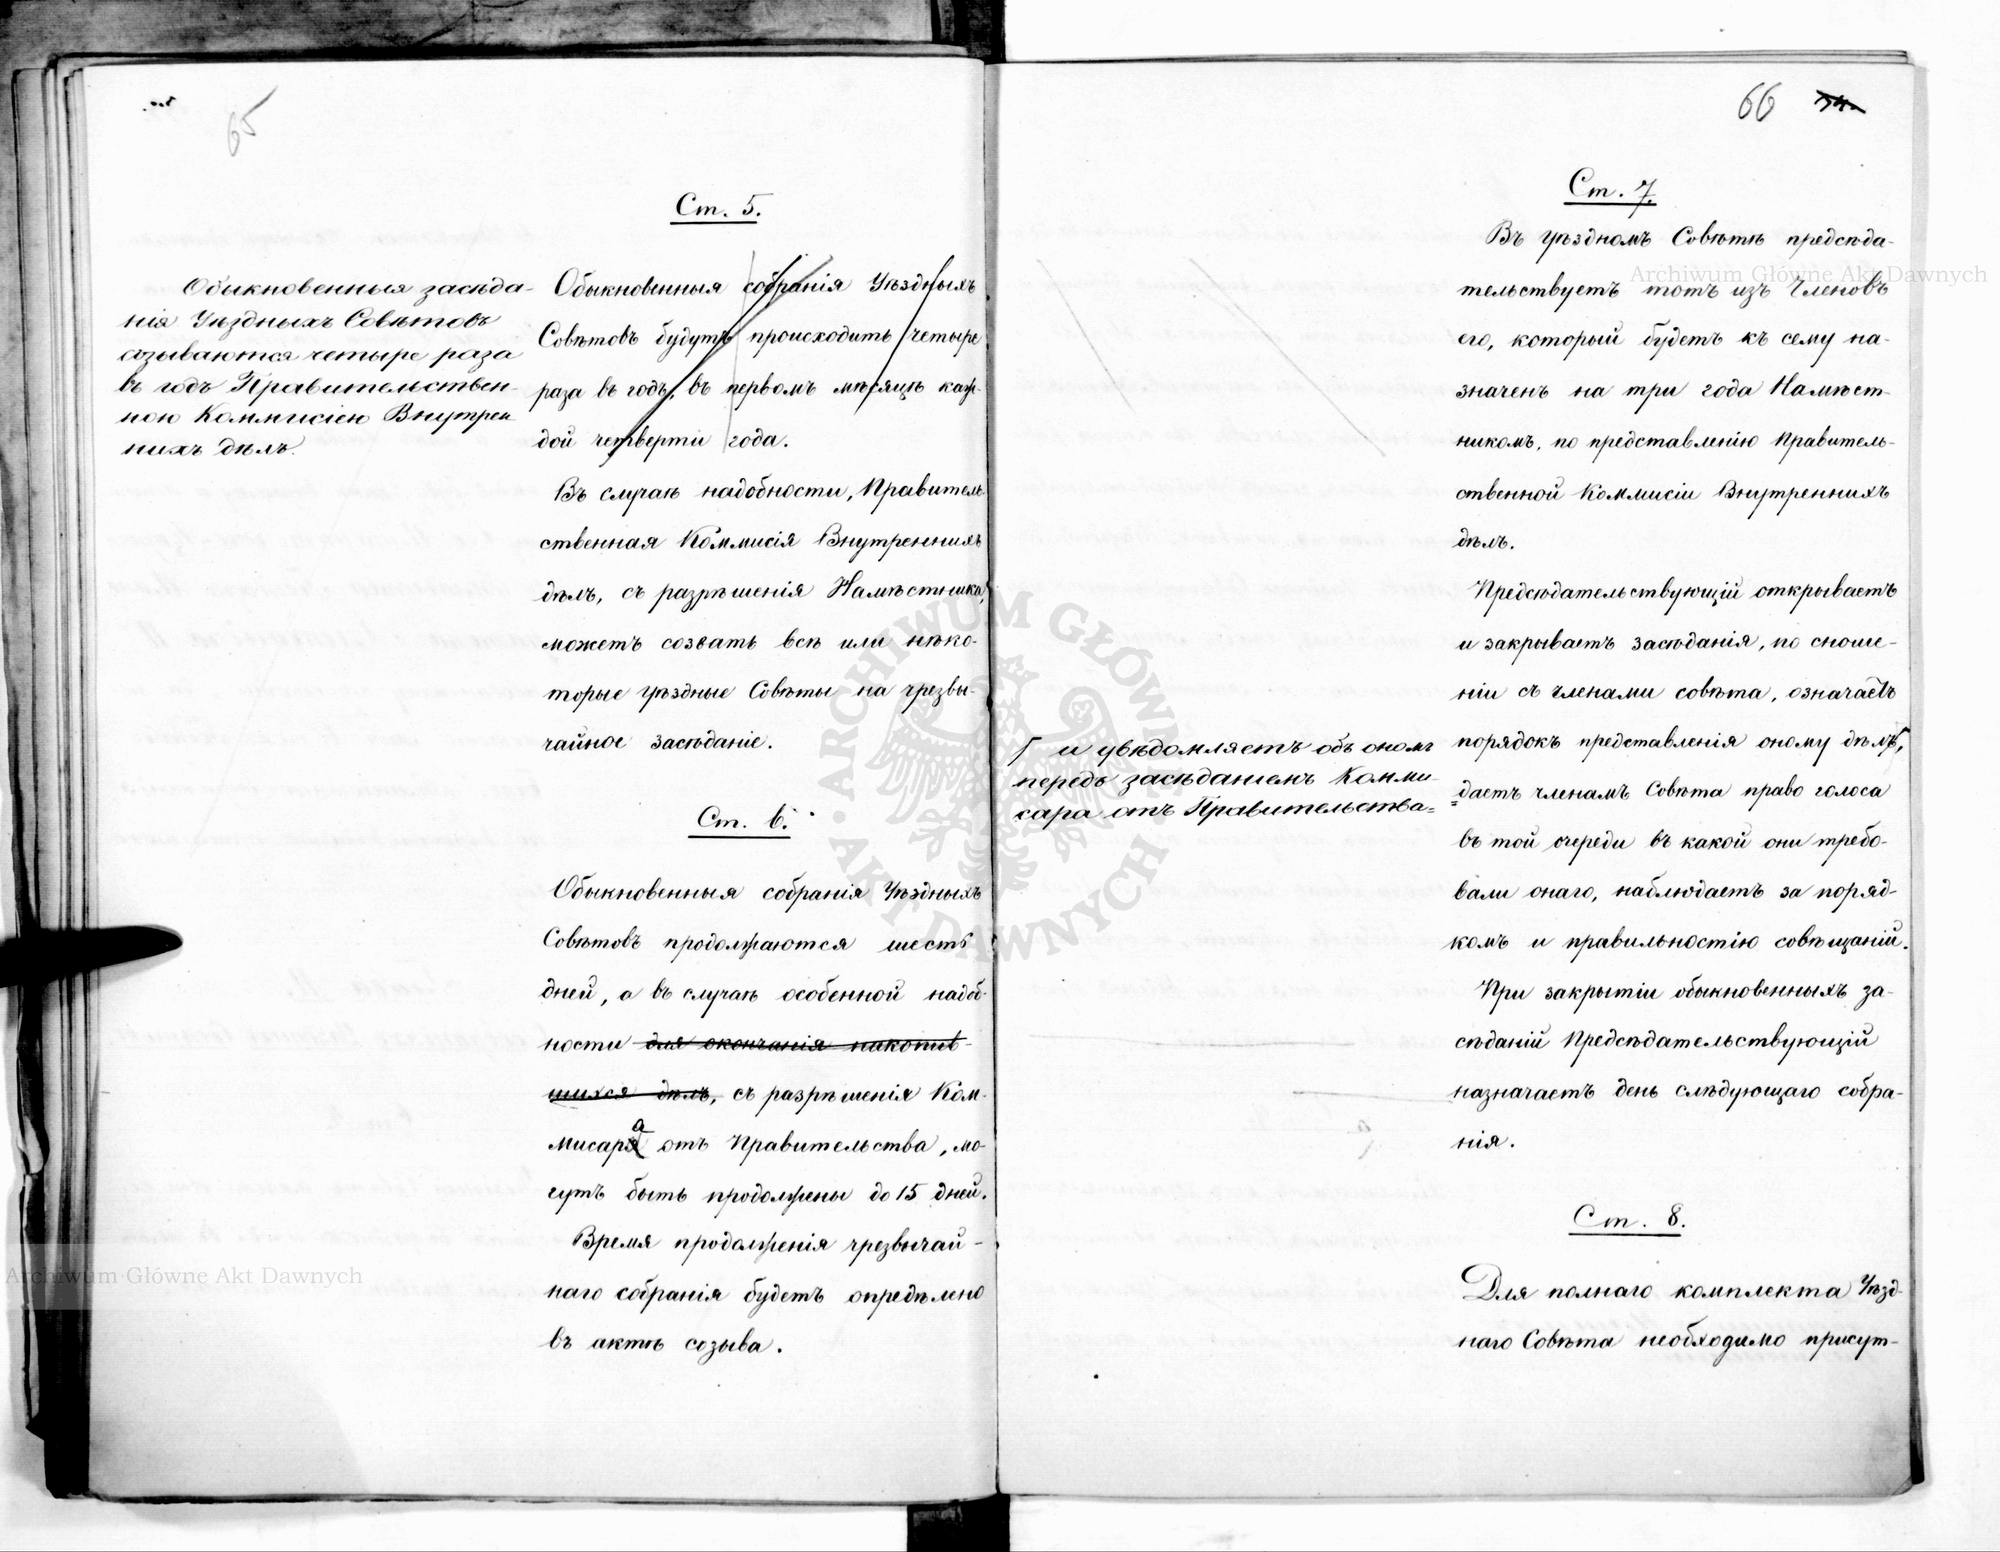 65
Ст. 5.
Обыкновенныя засѣда-
нія Уѣздныхъ Совѣтовъ
созываются четыре раза
въ годъ Правительствен-
ною Коммисіею Внутрен
нихъ дѣлъ.
Обыкновенныя собранія Уѣздныхъ
Совѣтовъ будутъ происходить четыре
раза въ годъ, въ первомъ мѣсяцѣ каж-
дой четверти года.
Въ случаѣ надобности, Правитель-
ственная Коммисія Внутреннихъ
дѣлъ, съ разрѣшенія Намѣстника,
можетъ созвать всѣ или нѣко-
торые уѣздные Совѣты на чрезвы-
чайное засѣданіе.
Ст. 6.
Обыкновенныя собранія Уѣздныхъ
Совѣтовъ продолжаются шесть
дней, а въ случаѣ особенной надоб-
ности для окончанія накопив-
шихся дѣлъ, съ разрѣшенія Ком-
мисара отъ Правительства, мо-
гутъ быть продолжены до 15 дней.
Время продолженія чрезвычай-
наго собранія будетъ опредѣлено
въ актѣ созыва.
66
Ст. 7.
Въ уѣздномъ Совѣтѣ предсѣда-
тельствуетъ тотъ изъ Членовъ
его, который будетъ къ сему на-
значенъ на три года Намѣст-
никомъ, по представленію Правитель-
ственной Коммисіи Внутреннихъ
дѣлъ.
Предсѣдательствующій открываетъ
и закрываетъ засѣданія, по сноше-
ніи съ членами совѣта, означаетъ
порядокъ представленія оному дѣлъ,
и увѣдомляетъ объ ономъ
передъ засѣданіемъ Комми-
сара отъ Правительства=
=даетъ членамъ Совѣта право голоса
въ той очереди въ какой они требо-
вали онаго, наблюдаетъ за поряд-
комъ и правильностію совѣщаній.
При закрытіи обыкновенныхъ за-
сѣданій Предсѣдательствующій
назначаетъ день слѣдующаго собра-
нія.
Ст. 8.
Для полнаго комплекта Уѣзд-
наго Совѣта необходимо присут-
Archiwum Główne Akt Dawnych
Archiwum Główne Akt Dawnych
ARCHIWUM GŁÓWNE AKT DAWNYCH